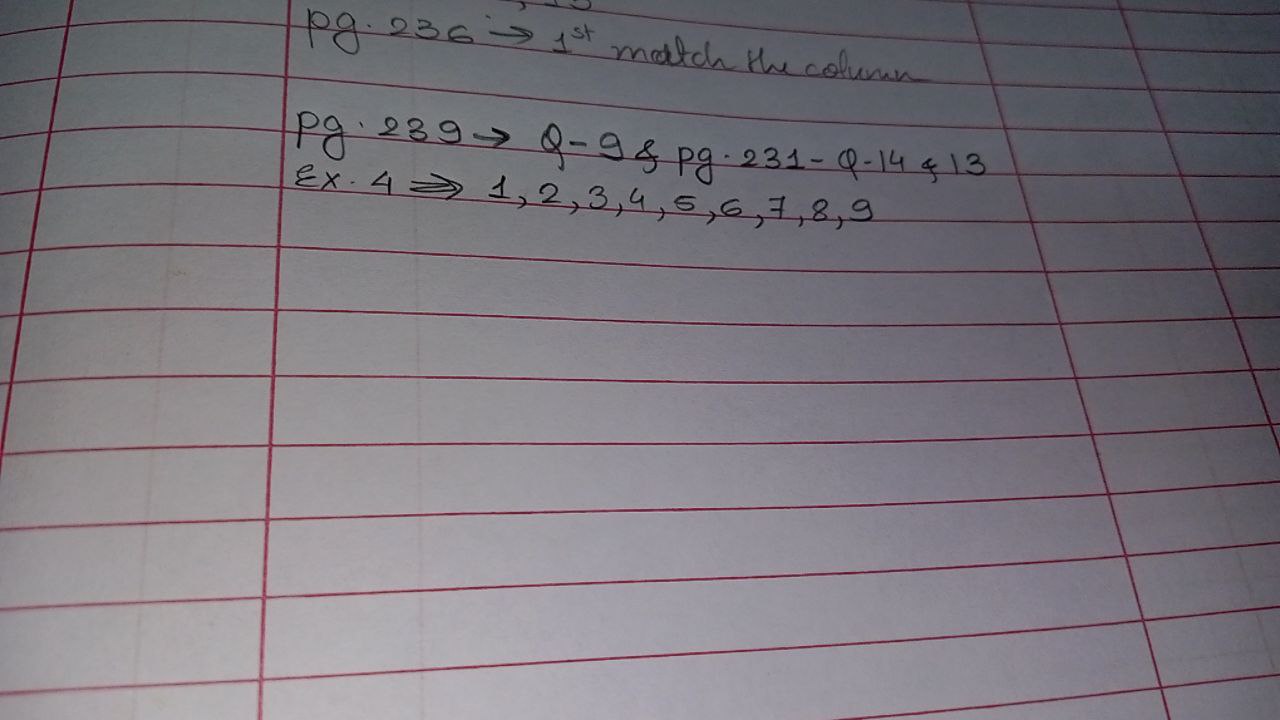 pg. 236 → 1st match the column
pg. 239 → Q-9 & pg. 231 - Q-14 & 13
Ex. 4 ⇒ 1, 2, 3, 4, 5, 6, 7, 8, 9